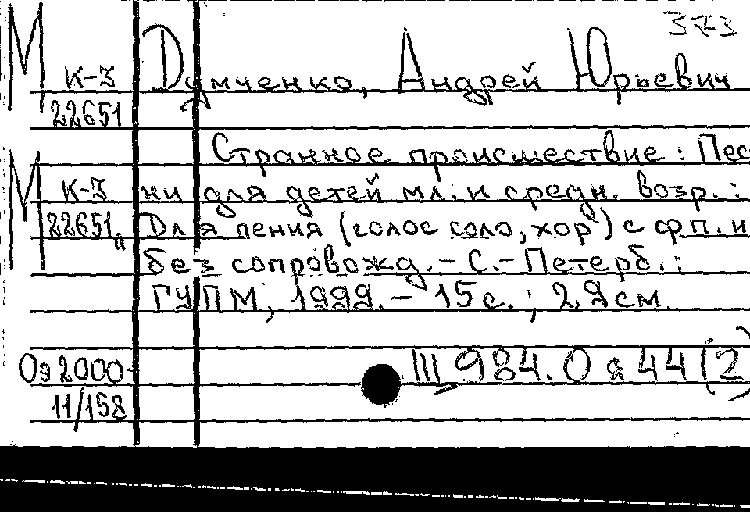 373
М Думченко, Андрей Юрьевич
К-3
22651
Странное происшествие : Пес-
М К-3 ни для детей мл. и средн. возр. :
22651 Для пения (голос соло, хор) с ф.п. и
без сопровожд. - С.-Петерб. :
ГУПМ, 1999. - 15 с. ; 29 см.
Оэ 2000-
11/158
III 984.0 я 44 (2)